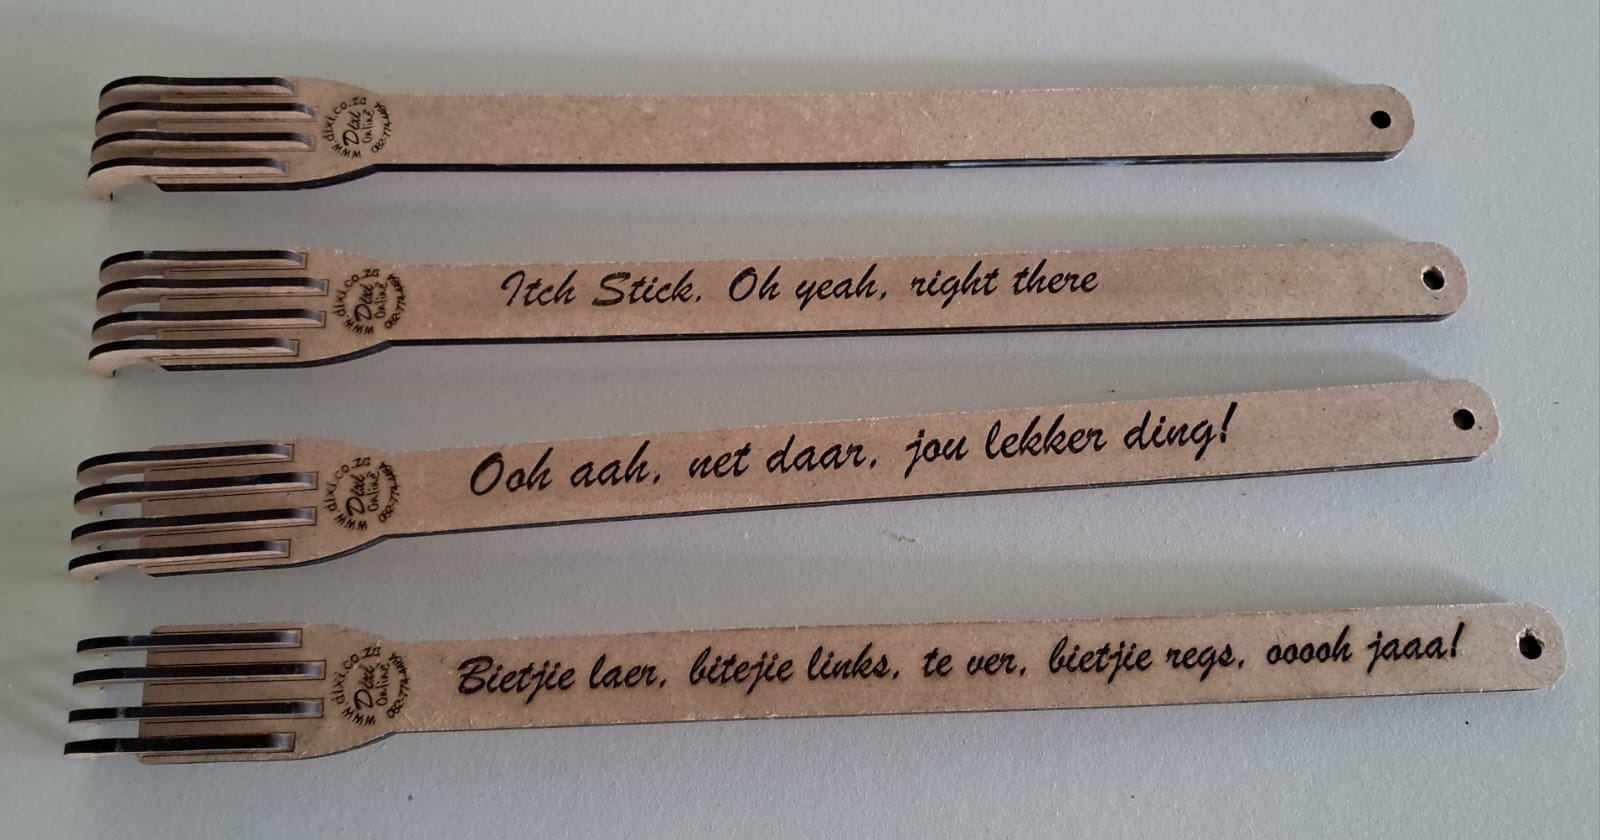 www.dixi.co.za
Dixi
Online
www.dixi.co.za
Dixi
Online
Itch Stick. Oh yeah, right there
www.dixi.co.za
Dixi
Online
Ooh aah, net daar, jou lekker ding!
www.dixi.co.za
Dixi
Online
Bietjie laer, bitejie links, te ver, bietjie regs, ooooh jaaa!